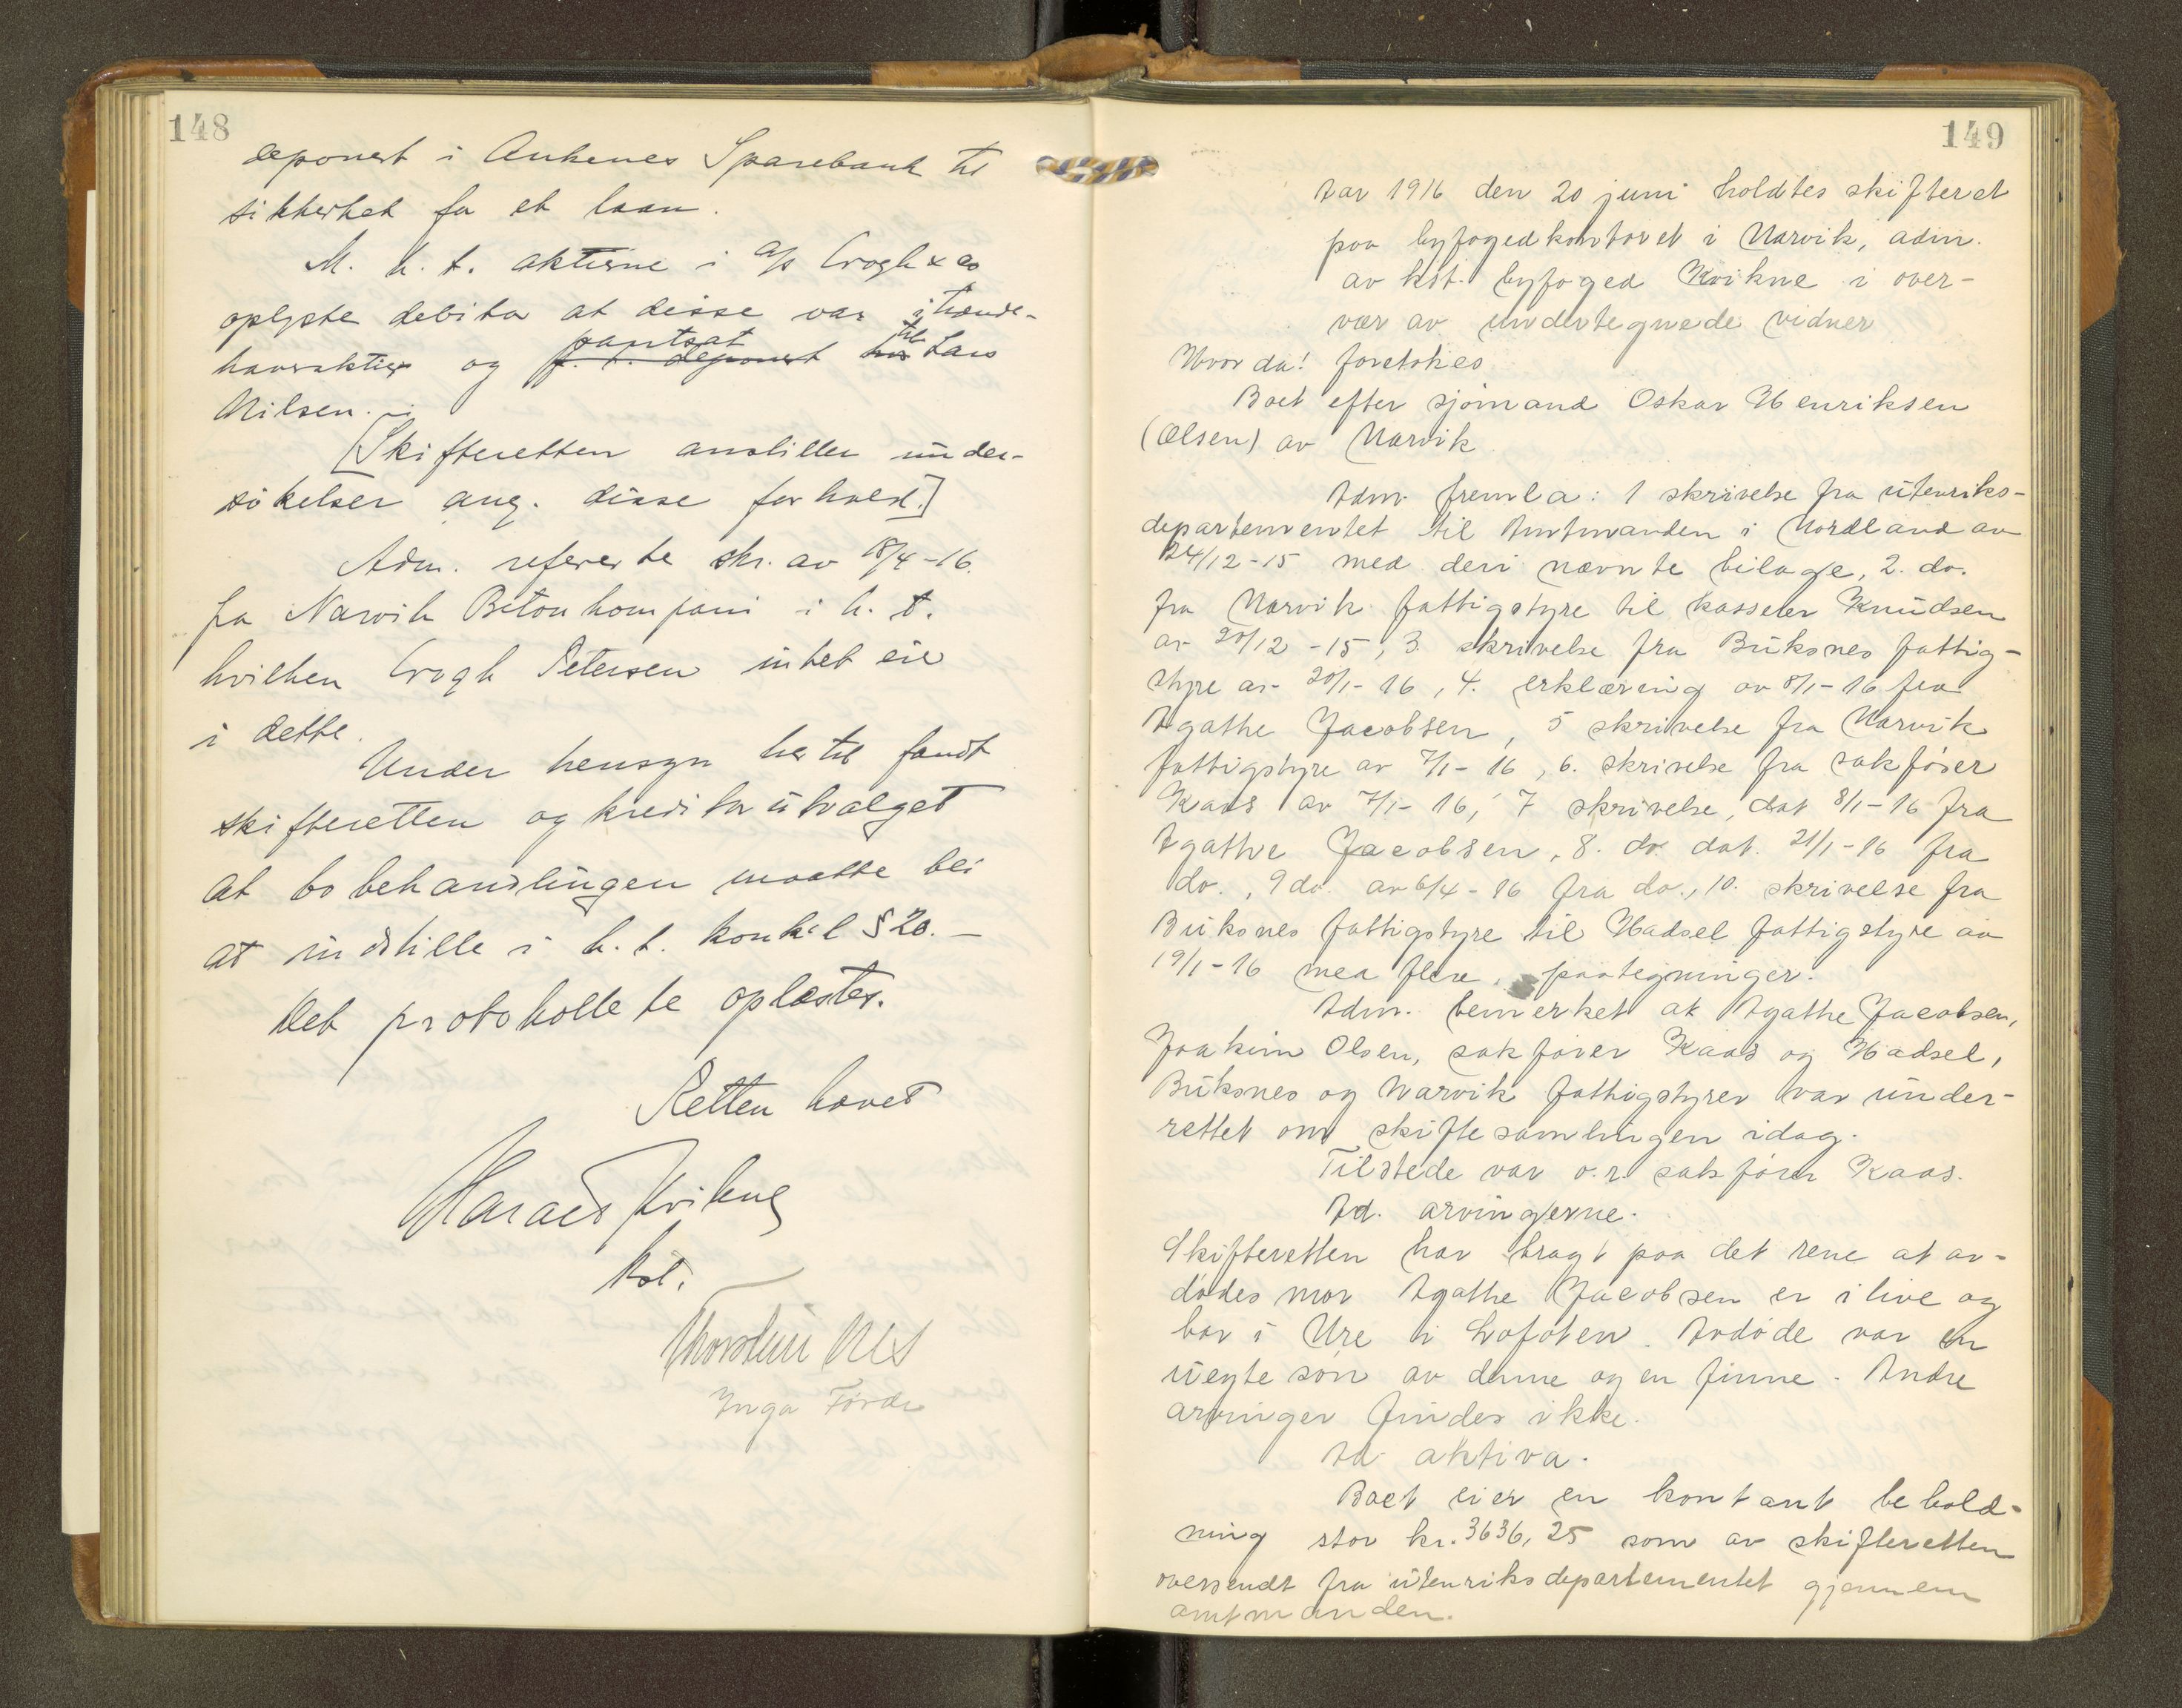 148
deponert i Ankenes Sparebank til
sikkerhet for et laan.
M. h. t. aktierne i A/s Crogh & co
oplyste debitor at disse var ihænde-
haveraktier og pantsat til Lars
f. t. deponert hos
Nilsen.
[Skifteretten anstiller under-
søkelser ang. disse forhold.]
Adm. refererte skr. av 18/4-16.
fra Narvik Betonkompani i h. t.
hvilken Crogh Petersen intet eie
i dette.
Under hensyn hertil fandt
skifteretten og kreditorutvalget
at bobehandlingen maatte bli
at indstille i h. t. konk.l § 20.-
Det protokollerte oplæstes.
Retten hævet
Harald Kvikne
kst.
Thorstein
Inga Førde
149
Aar 1916 den 20 juni holdtes skifteret
paa byfogedkontoret i Narvik, adm.
av kst. byfoged Kvikne i over-
vær av undertegnede vidner
Hvor da! foretokes
Boet efter sjømand Oskar Henriksen
(Olsen) av Narvik
Adm. fremla: 1 skrivelse fra utenriks-
departementet til Amtmanden i Nordland av
24/12-15 med deri nævnte bilage, 2. do.
fra Narvik fattigstyre til kasserer Knudsen
av 20/12-15, 3 skrivelse fra Buksnes fattig-
styre av 20/1-16, 4. erklæring av 8/1-16 fra
Agathe Jacobsen, 5 skrivelse fra Narvik
fattigstyre av 7/1-16, 6. skrivelse fra sakfører
Kaas av 7/1-16, 7 skrivelse, dat 8/1-16 fra
Agathe Jacobsen, 8. do. dat. 21/1-16 fra
do., 9 do. av 6/4-16 fra do., 10. skrivelse fra
Buksnes fattigstyre til Hadsel fattigstyre av
19/1-16 med flere paategninger.
Adm. bemerket at Agathe Jacobsen,
Joakim Olsen, sakfører Kaas og Hadsel,
Buksnes og Narvik fattigstyrer var under-
rettet om skiftesamlingen idag.
Tilstede var o.r. sakfører Kaas.
Ad. arvingerne.
Skifteretten har bragt paa det rene at av-
dødes mor Agathe Jacobsen er ilive og
bor i Ure i Lofoten. Avdøde var en
uegte søn av denne og en finne. Andre
arvinger findes ikke.
Ad aktiva.
Boet eier en kontant behold-
ning stor kr. 3636,25 som av skifteretten
oversendt fra utenriksdepartementet gjennem
amtmanden.